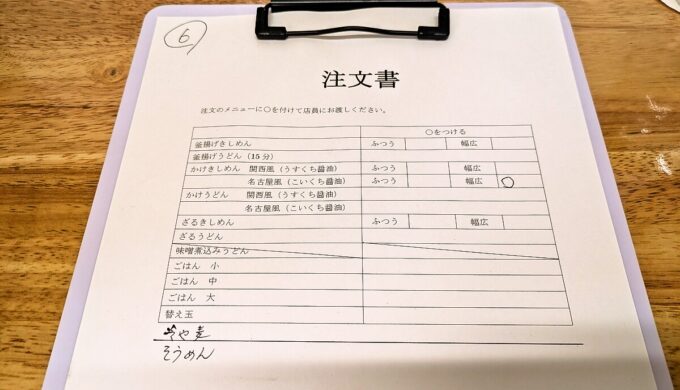 6
注文書
注文のメニューに〇を付けて店員にお渡しください。
〇をつける
釜揚げきしめん ふつう 幅広
釜揚げうどん (15分)
かけきしめん 関西風 (うすくち醤油) ふつう 幅広
名古屋風 (こいくち醤油) ふつう 幅広 〇
かけうどん 関西風 (うすくち醤油)
名古屋風 (こいくち醤油)
ざるきしめん ふつう 幅広
ざるうどん
味噌煮込みうどん
ごはん 小
ごはん 中
ごはん 大
替え玉
そうめん